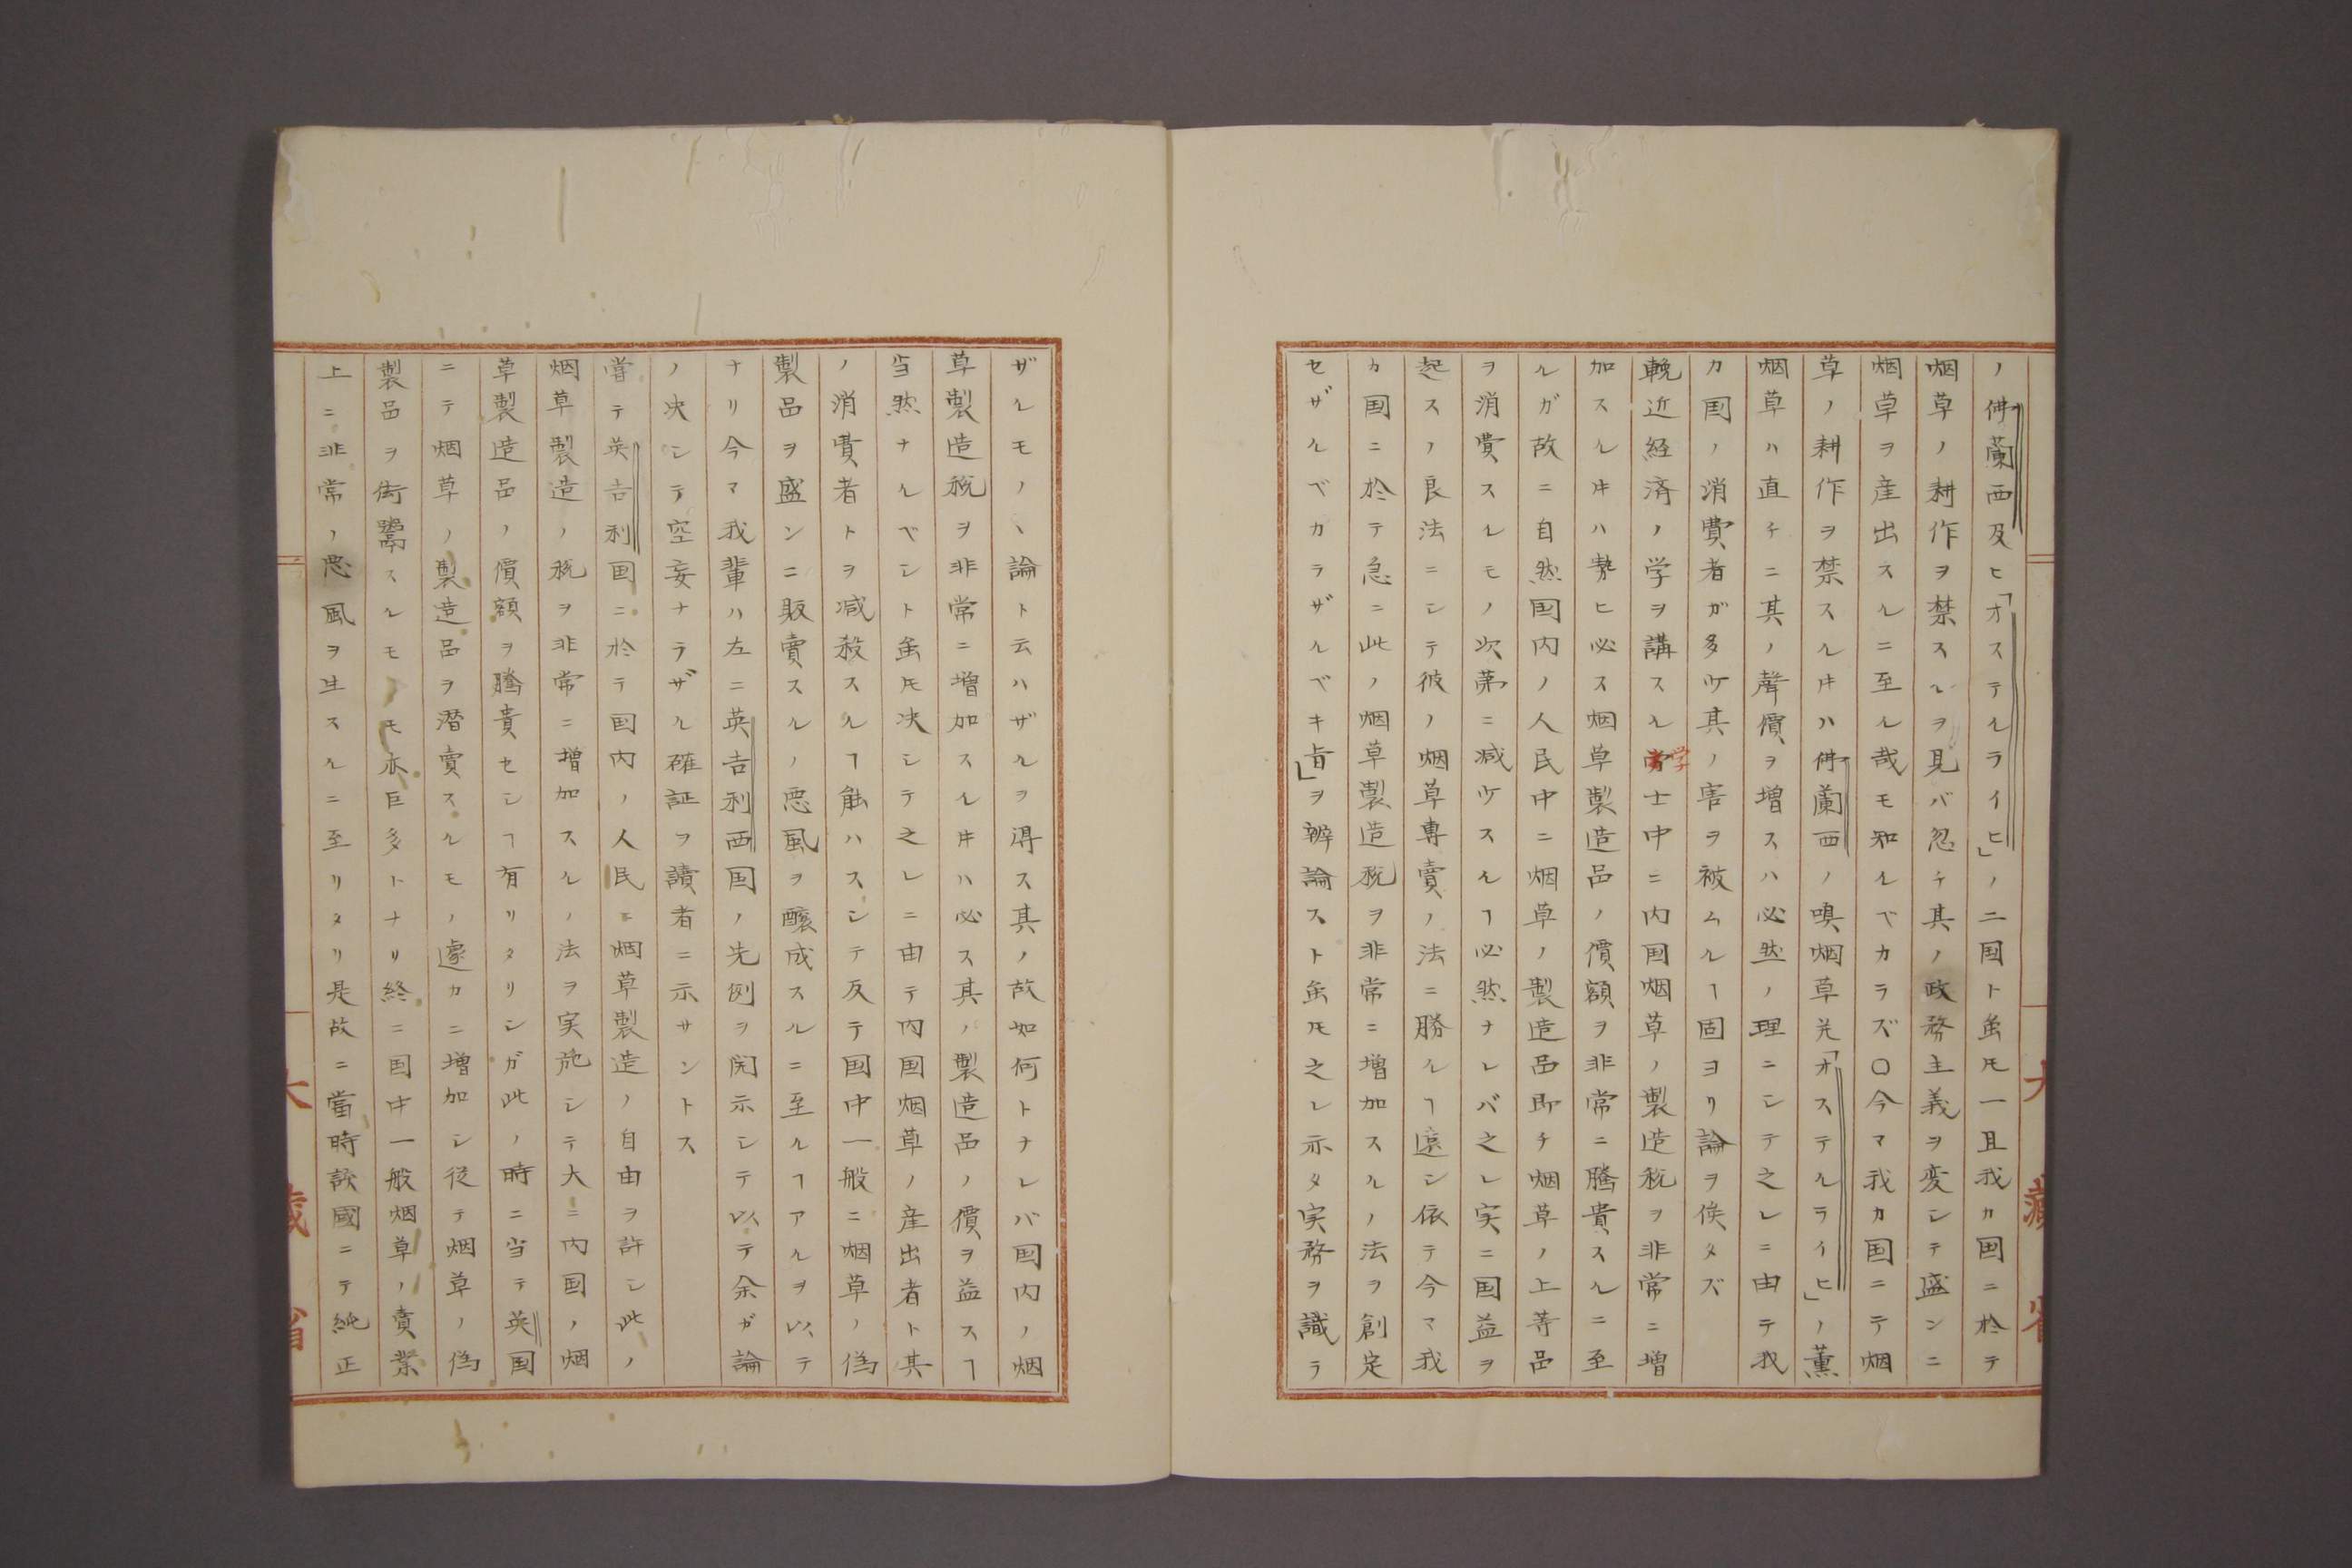 ノ佛蘭西及ヒ「オステルライヒ」ノ二国ト虽𪜈一旦我カ国ニ於テ
烟草ノ耕作ヲ禁スルヲ見バ忽チ其ノ政務主義ヲ変シテ盛ンニ
烟草ヲ産出スルニ至ル哉モ知ルベカラズ〇今マ我カ国ニテ烟
草ノ耕作ヲ禁スルㇳキハ佛蘭西ノ嗅烟草并「オステルライヒ」ノ薫
烟草ハ直チニ其ノ聲價ヲ増スハ必然ノ理ニシテ之レニ由テ我
カ国ノ消費者ガ多少其ノ害ヲ被ムルヿ固ヨリ論ヲ俟タズ
輓近経済ノ学ヲ講スル学士中ニ内国烟草ノ製造税ヲ非常ニ増
加スル𪜈ハ勢ヒ必ス烟草製造品ノ價額ヲ非常ニ騰貴スルニ至
ルガ故ニ自然国内ノ人民中ニ烟草ノ製造品即チ烟草ノ上等品
ヲ消費スルモノ次第ニ減少スルヿ必然ナレバ之レ実ニ国益ヲ
起スノ良法ニシテ彼ノ烟草専賣ノ法ニ勝ルヿ遠シ依テ今マ我
カ国ニ於テ急ニ此ノ烟草製造税ヲ非常ニ増加スルノ法ヲ創定
セザルベカラザルベキ旨」ヲ辨論スト虽𪜈之レ示タ実務ヲ識ラ
ザルモノヽ論ト云ハザルヲ得ス其ノ故如何トナレバ国内ノ烟
草製造税ヲ非常ニ増加スルㇳキハ必ス其ノ製造品ノ價ヲ益スヿ
当然ナルベシト虽𪜈决シテ之レニ由テ内国烟草ノ産出者ト其
ノ消費者トヲ减殺スルヿ能ハスシテ反テ国中一般ニ烟草ノ偽
製品ヲ盛ンニ販賣スルノ悪風ヲ醸成スルニ至ルヿアルヲ以テ
ナリ今マ我輩ハ左ニ英吉利西国ノ先例ヲ開示シテ以テ余ガ論
ノ决シテ空妄ナラザル確証ヲ讀者ニ示サントス
嘗テ英吉利国ニ於テ国内ノ人民ニ烟草製造ノ自由ヲ許シ此ノ
烟草製造ノ税ヲ非常ニ増加スルノ法ヲ実施シテ大ニ内国ノ烟
草製造品ノ價額ヲ騰貴セシヿ有リタリシガ此ノ時ニ当テ英国
ニテ烟草ノ製造品ヲ潜賣スルモノ遽カニ増加シ従テ烟草ノ偽
製品ヲ街鬻スルモノモ亦巨多トナリ終ニ国中一般烟草ノ賣業
上ニ非常ノ悪風ヲ生スルニ至リタリ是故ニ當時該國ニテ純正
大藏省